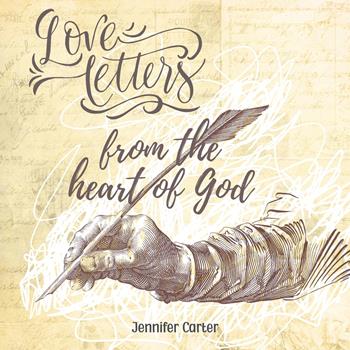 Love
Letters
from the
heart of God
Jennifer Carter